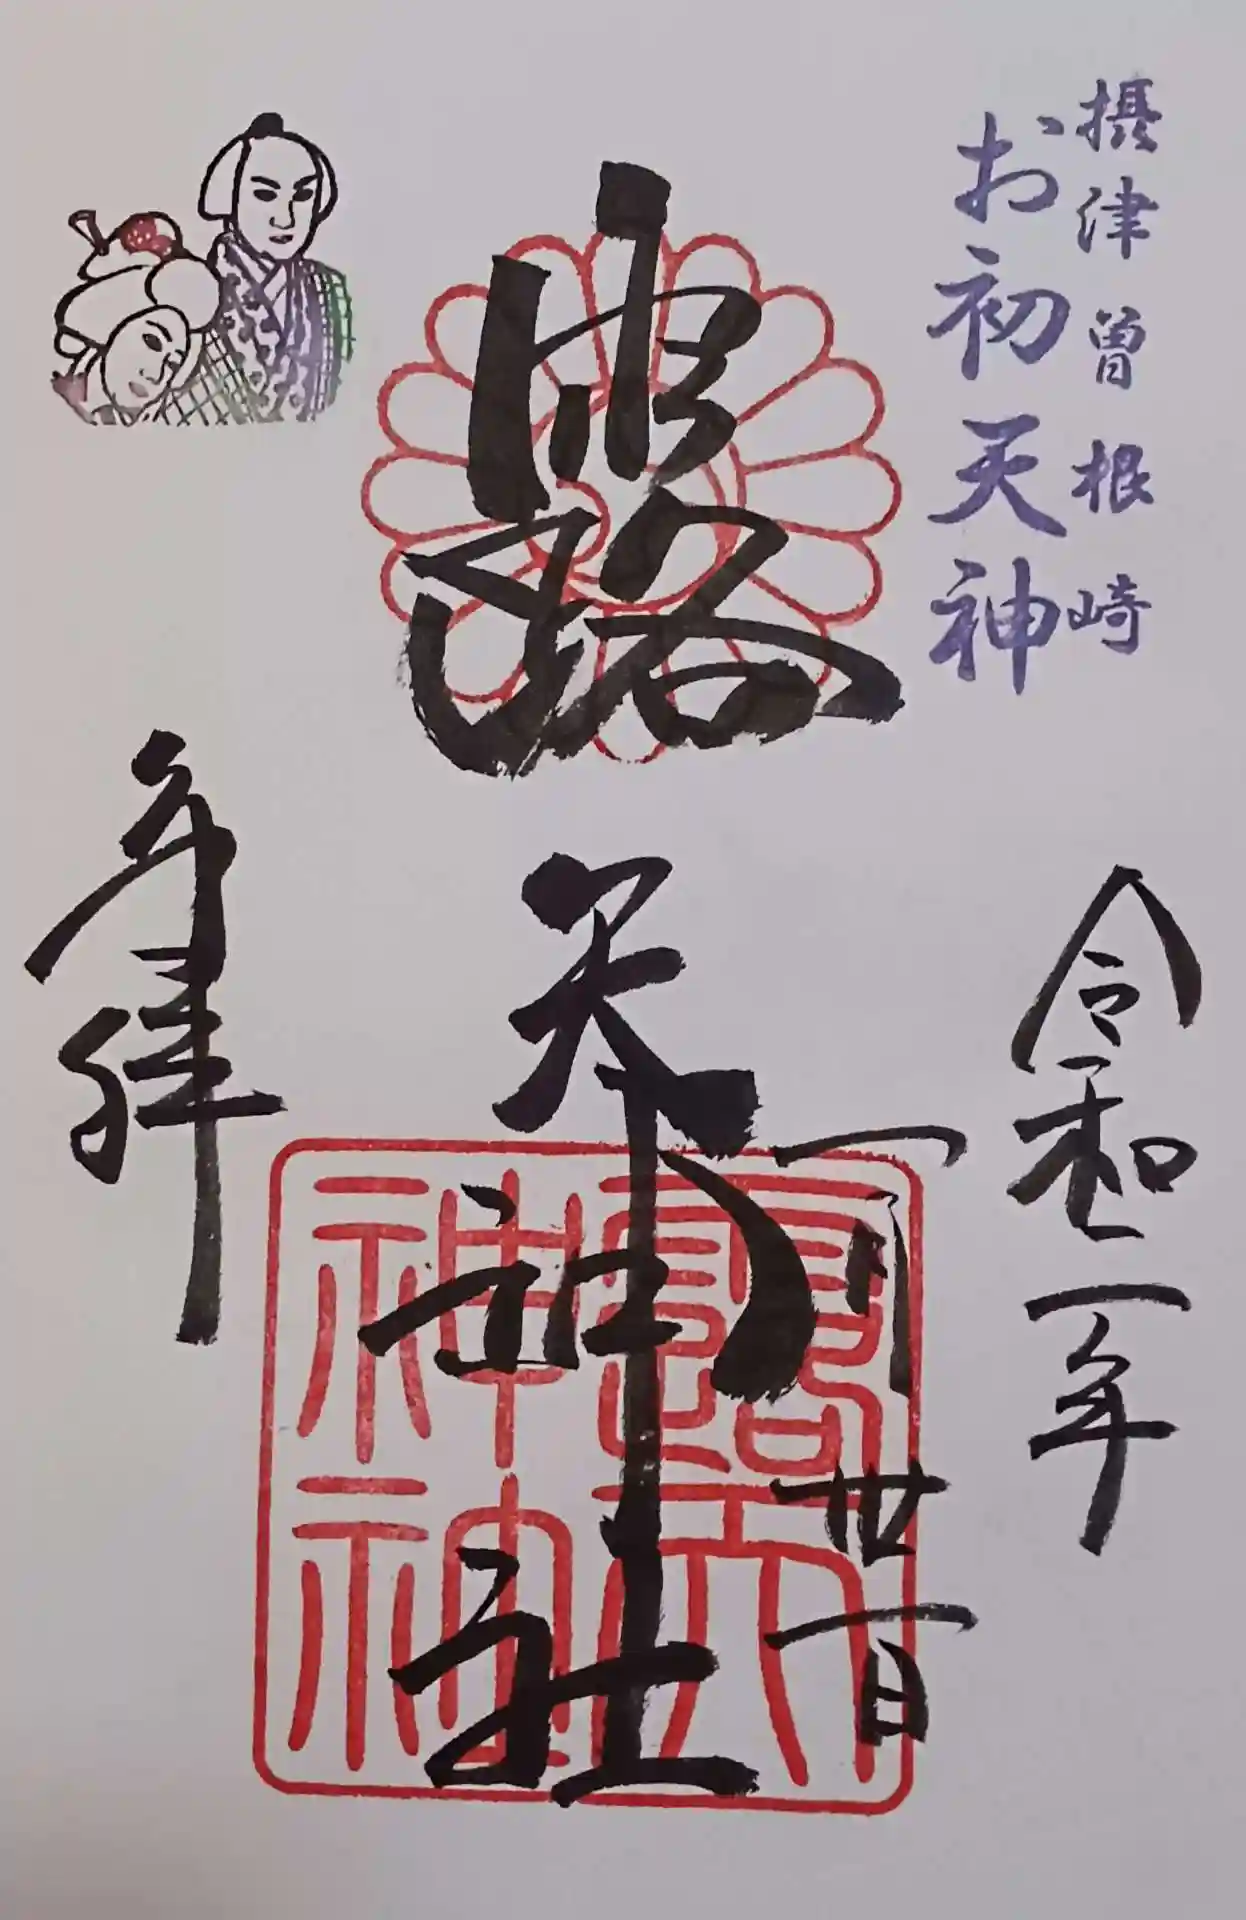 摂津曽根崎
お初天神
令和二年
一月廿一日
露天神社
露天神社
奉拝